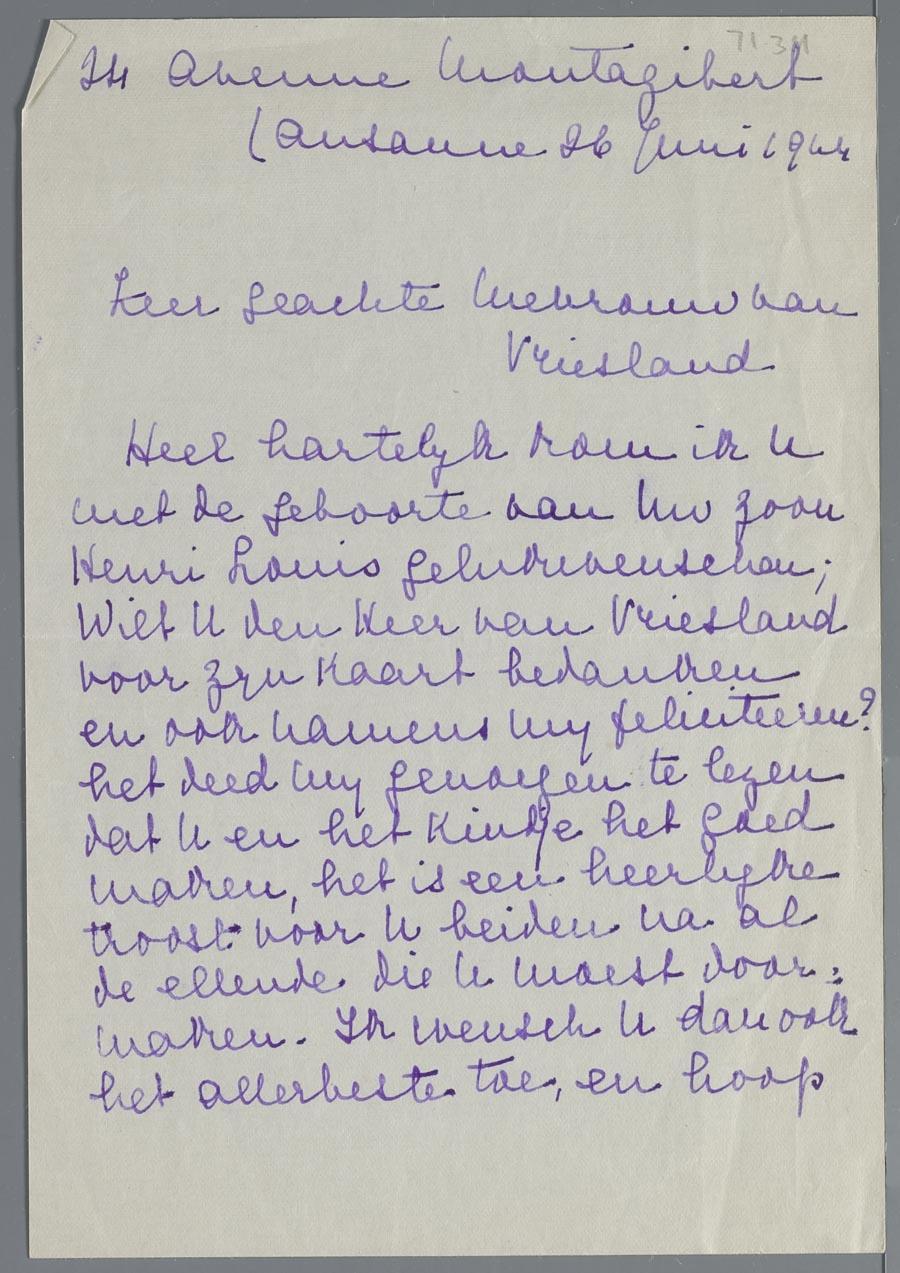 71.311
24 Avenue Montagibert
Lausanne 26 Juni 1944
Zeer geachte Mevrouw van
Vriesland
Heel hartelyk kom ik U
met de geboorte van Uw zoon
Henri Louis gelukwenschen;
Wilt U den Heer van Vriesland
voor zyn Kaart bedanken
en ook namens my feliciteeren?
het deed my genoegen te lezen
dat U en het Kindje het goed
maken, het is een heerlyke
troost voor U beiden na al
de ellende die U moest door=
maken. Ik wensch U dan ook
het allerbeste toe, en hoop